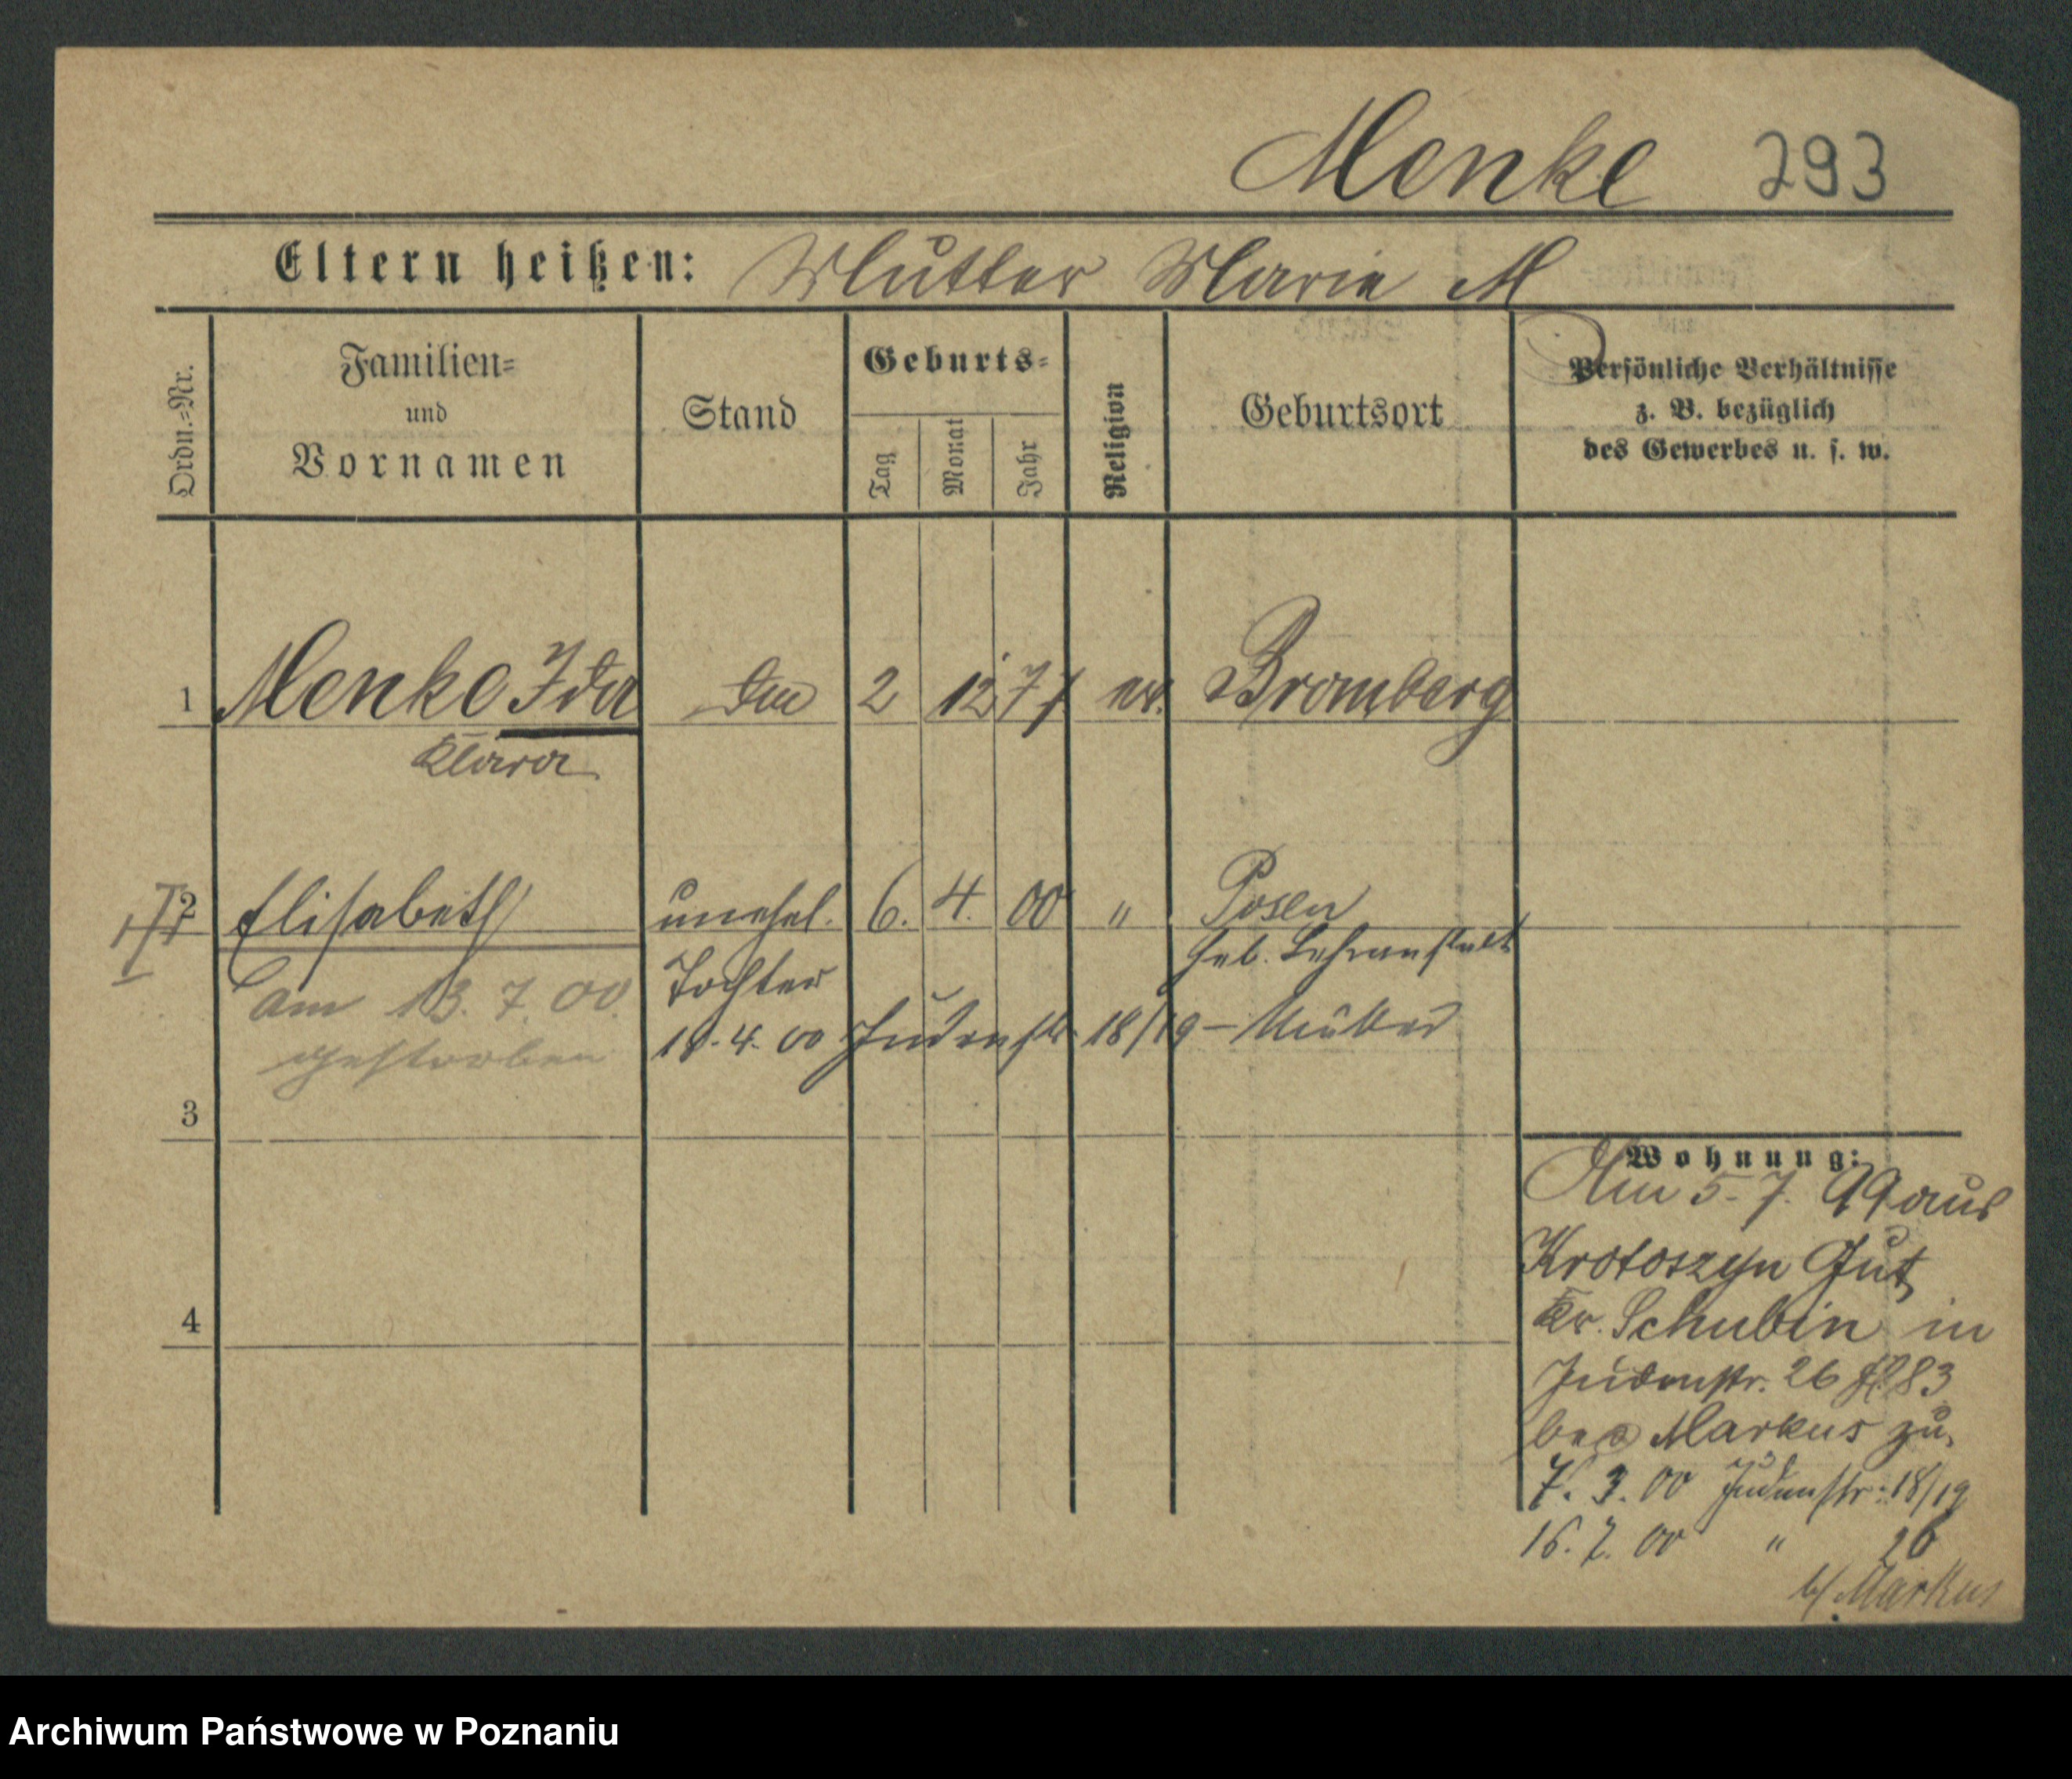 Menke 293
Eltern heißen: Mutter Marie M
Ordn.=Nr.
Familien=
und
Vornamen
Stand
Geburts=
Tag
Monat
Jahr
Religion
Geburtsort
Persönliche Verhältnisse
z. B. bezüglich
des Gewerbes u. s. w.
1 Menke Ida 2 12 77 ev. Bromberg
Klara
2 Elisabeth unehel. 6. 4. 00 " Posen
Tochter Heb. Lehranstalt
am 13. 7. 00.
gestorben
4. 00 Judenstr. 18/19 – Mutter
3
4
Wohnung:
Am 5. 7. 99 aus
Krotoszyn Gut
Kr. Schubin in
Judenstr. 26 83
bei Markus zu.
7. 3. 00 Judenstr. 18/19
16. 7. 00 " 26
b/ Markus
Archiwum Państwowe w Poznaniu